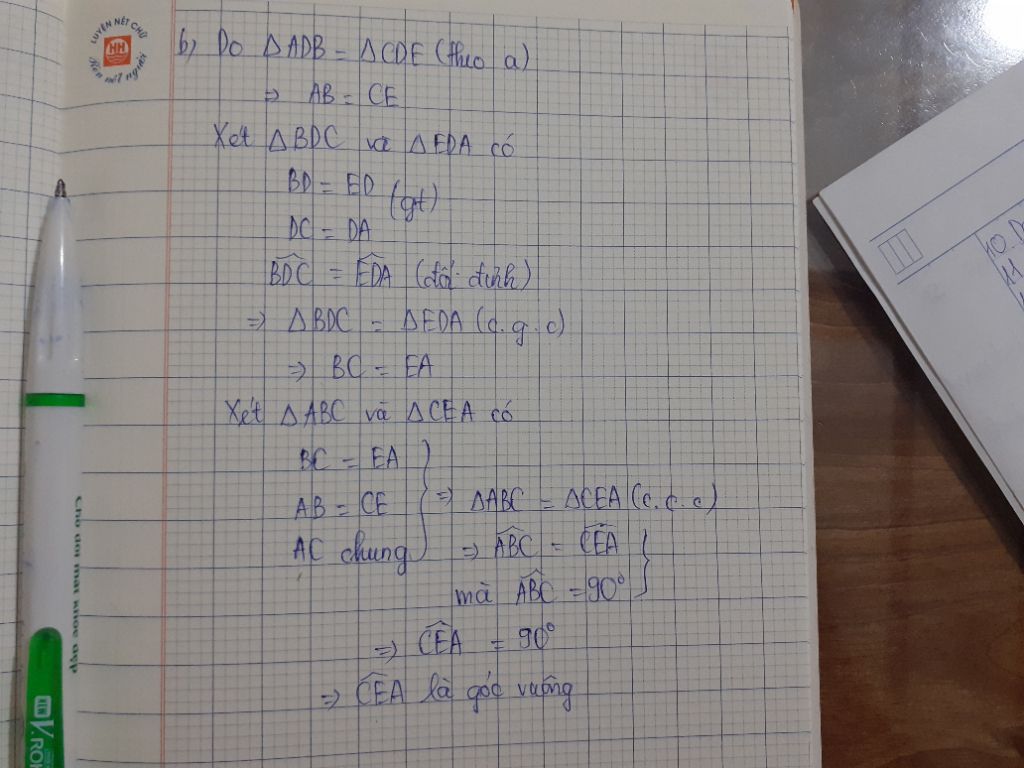 LUYỆN NÉT CHỮ
HH
Rèn nết người
b) Do ΔADB = ΔCDE (theo a)
⇒ AB = CE
Xét ΔBDC và ΔEDA có
BD = ED
(gt)
DC = DA
\widehat{BDC} = \widehat{EDA} (đối đỉnh)
⇒ ΔBDC = ΔEDA (c.g.c)
⇒ BC = EA
Xét ΔABC và ΔCEA có
BC = EA
AB = CE } ⇒ ΔABC = ΔCEA (c.c.c)
AC chung ⇒ \widehat{ABC} = \widehat{CEA}
mà \widehat{ABC} = 90° }
⇒ \widehat{CEA} = 90°
⇒ \widehat{CEA} là góc vuông
10. D
11.